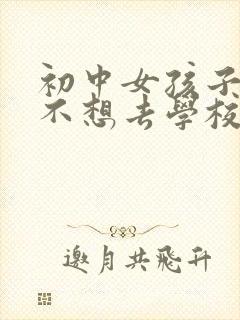 初中女孩子
不想去學校
邀月共飛升